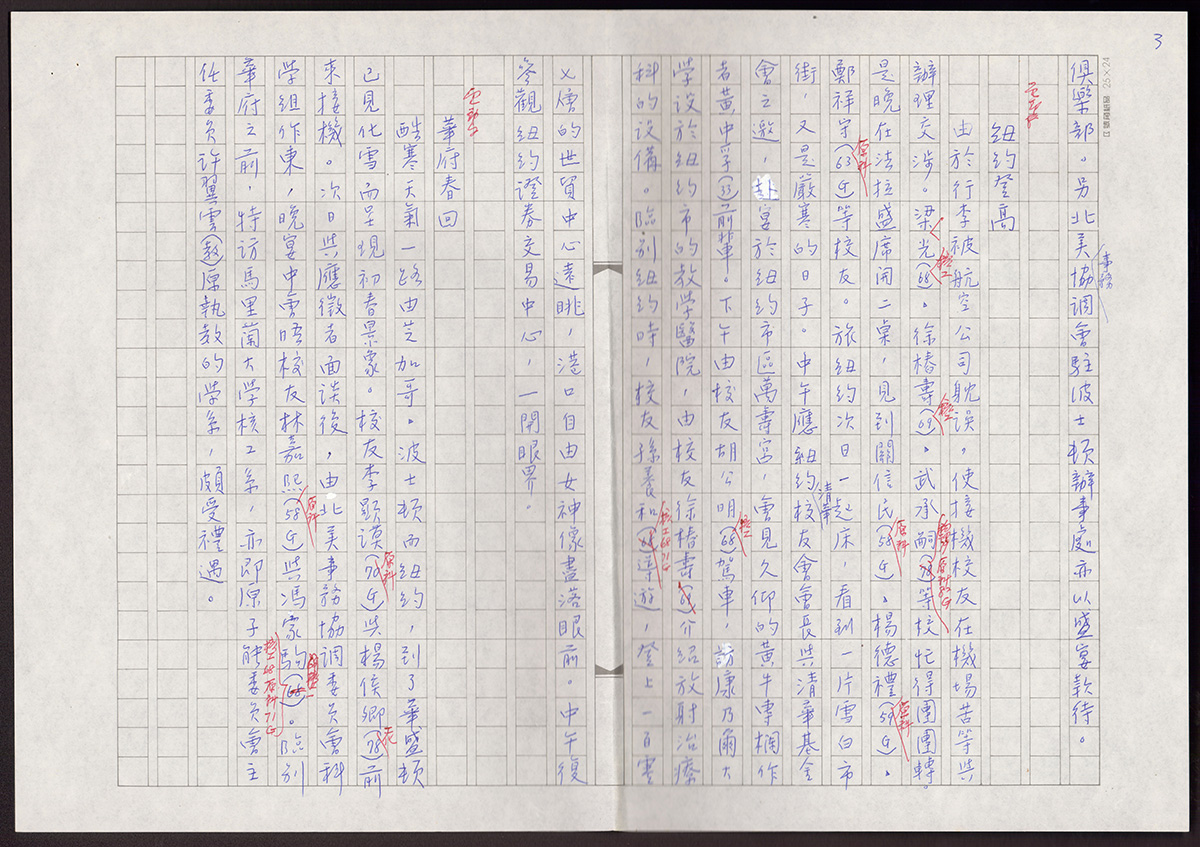 3
俱樂部。另北美事務協調會駐波士頓辦事處亦以盛宴款待。
紐約登高
由於行李被航空公司躭誤,使接機校友在機場苦等與
辦理交涉。梁光(核工68)、徐椿壽(核工69)、武承嗣(原科)等校忙得團團轉。
是晚在法拉盛席開二桌,見到關信民(原科58G)、楊德禮(原科59G)、
鄭祥守(原科63G)等校友。旅紐約次日一起床,看到一片雪白市
街,又是嚴寒的日子。中午應紐約清華校友會會長與清華基金
會之邀,赴宴於紐約市區萬壽宮,會見久仰的黃牛專欄作
者黃中孚(33)前輩。下午由校友胡公明(核工68)駕車,訪康乃爾大
學设於紐約市的教學醫院,由校友徐椿壽介紹放射治療
科的设備。臨别紐約時,校友孫養和(核工68原科71G)導遊,登上一百零
乂層的世貿中心遠眺,港口自由女神像盡落眼前。中午復
參觀紐約證券交易中心,一開眼界。
華府春回
酷寒天氣一路由芝加哥。波士頓而紐約,到了華盛頓
已見化雪而呈現初春景象。校友李顯謨(原科70G)與楊俟卿(78)前
來接機。次日與應徵者面谈後,由北美事務協調委员會科
学組作東,晚宴中會晤校友林嘉熙(原科58G)與馮家駒(核工68原科71G)。臨别
華府之前,特访馬里蘭大學核工系,亦即原子能委员會主
任委员许翼雲(教)原執教的学系,頗受禮遇。